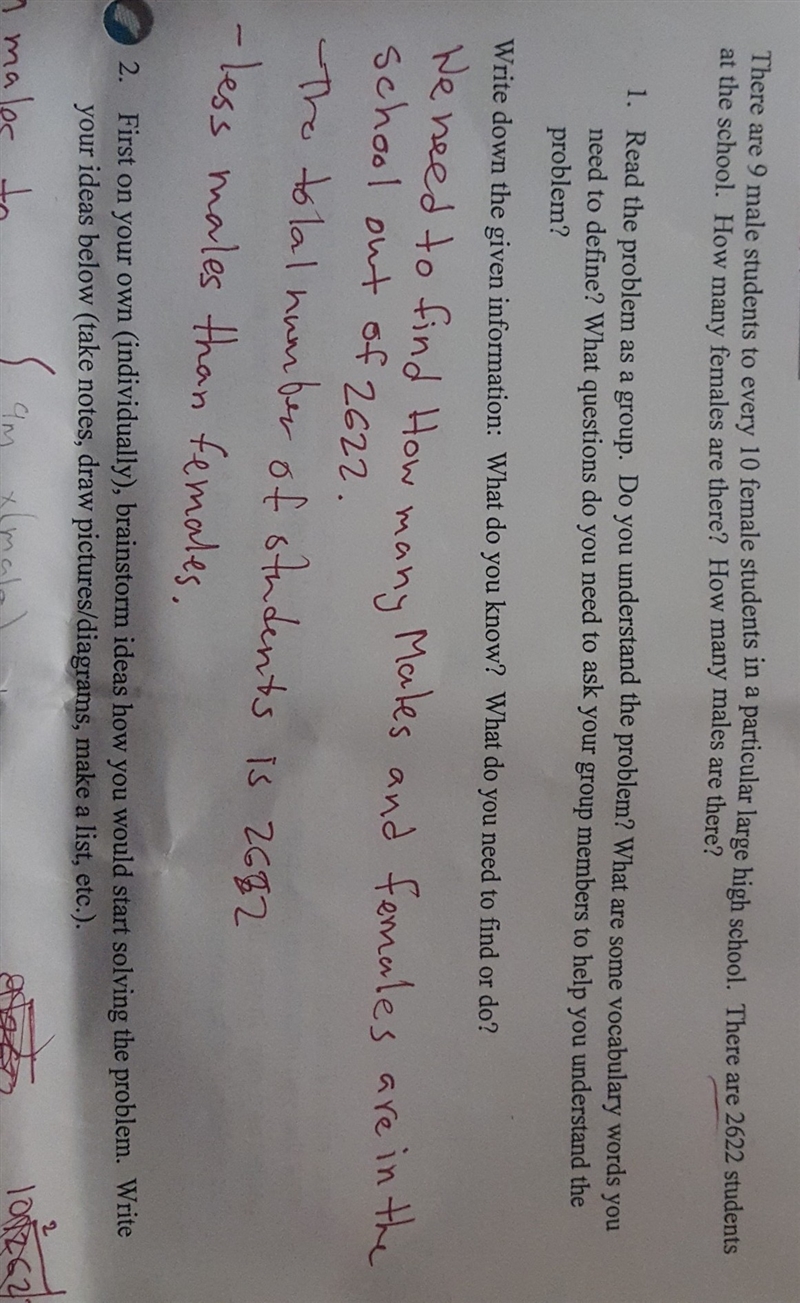 There are 9 male students to every 10 female students in a particular large high school. There are 2622 students
at the school. How many females are there? How many males are there?
1. Read the problem as a group. Do you understand the problem? What are some vocabulary words you
need to define? What questions do you need to ask your group members to help you understand the
problem?
Write down the given information: What do you know? What do you need to find or do?
We need to find How many Males and females are in the
school out of 2622.
- The total number of students is 2622
- less males than females.
2. First on your own (individually), brainstorm ideas how you would start solving the problem. Write
your ideas below (take notes, draw pictures/diagrams, make a list, etc.).
males to
9m x(male)